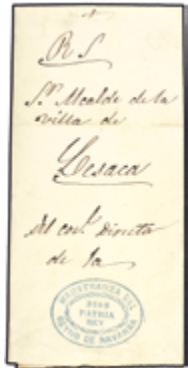 R S
Sr. Alcalde de la
villa de
Lesaca
Del corl. Directr
de la
MAESTRANZA DEL
DIOS
PATRIA
REY
REYNO DE NAVARRA